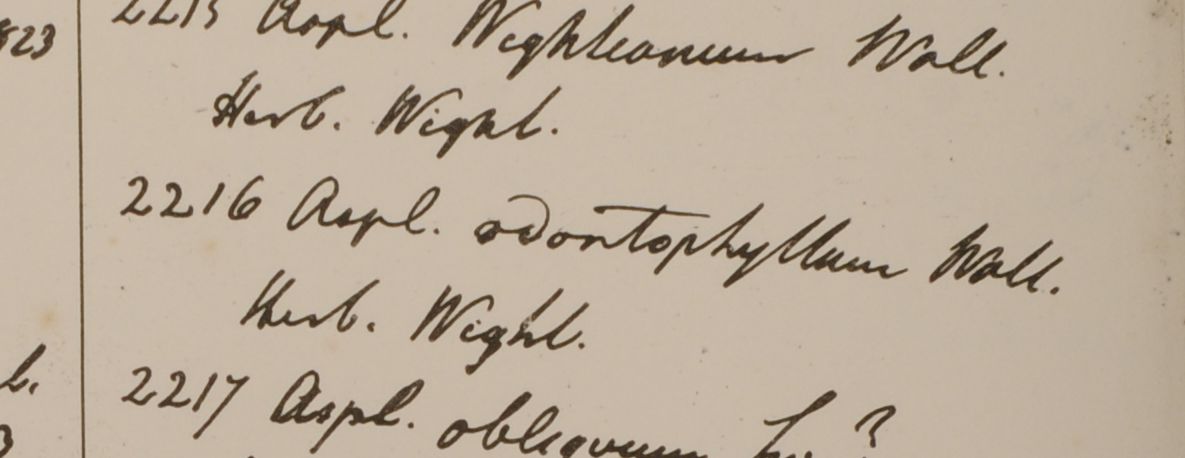 823
2215 Aspl. Wightianum Wall.
Herb. Wight.
2216 Aspl. odontophyllum Wall.
Herb. Wight.
2217 Aspl. obliquum